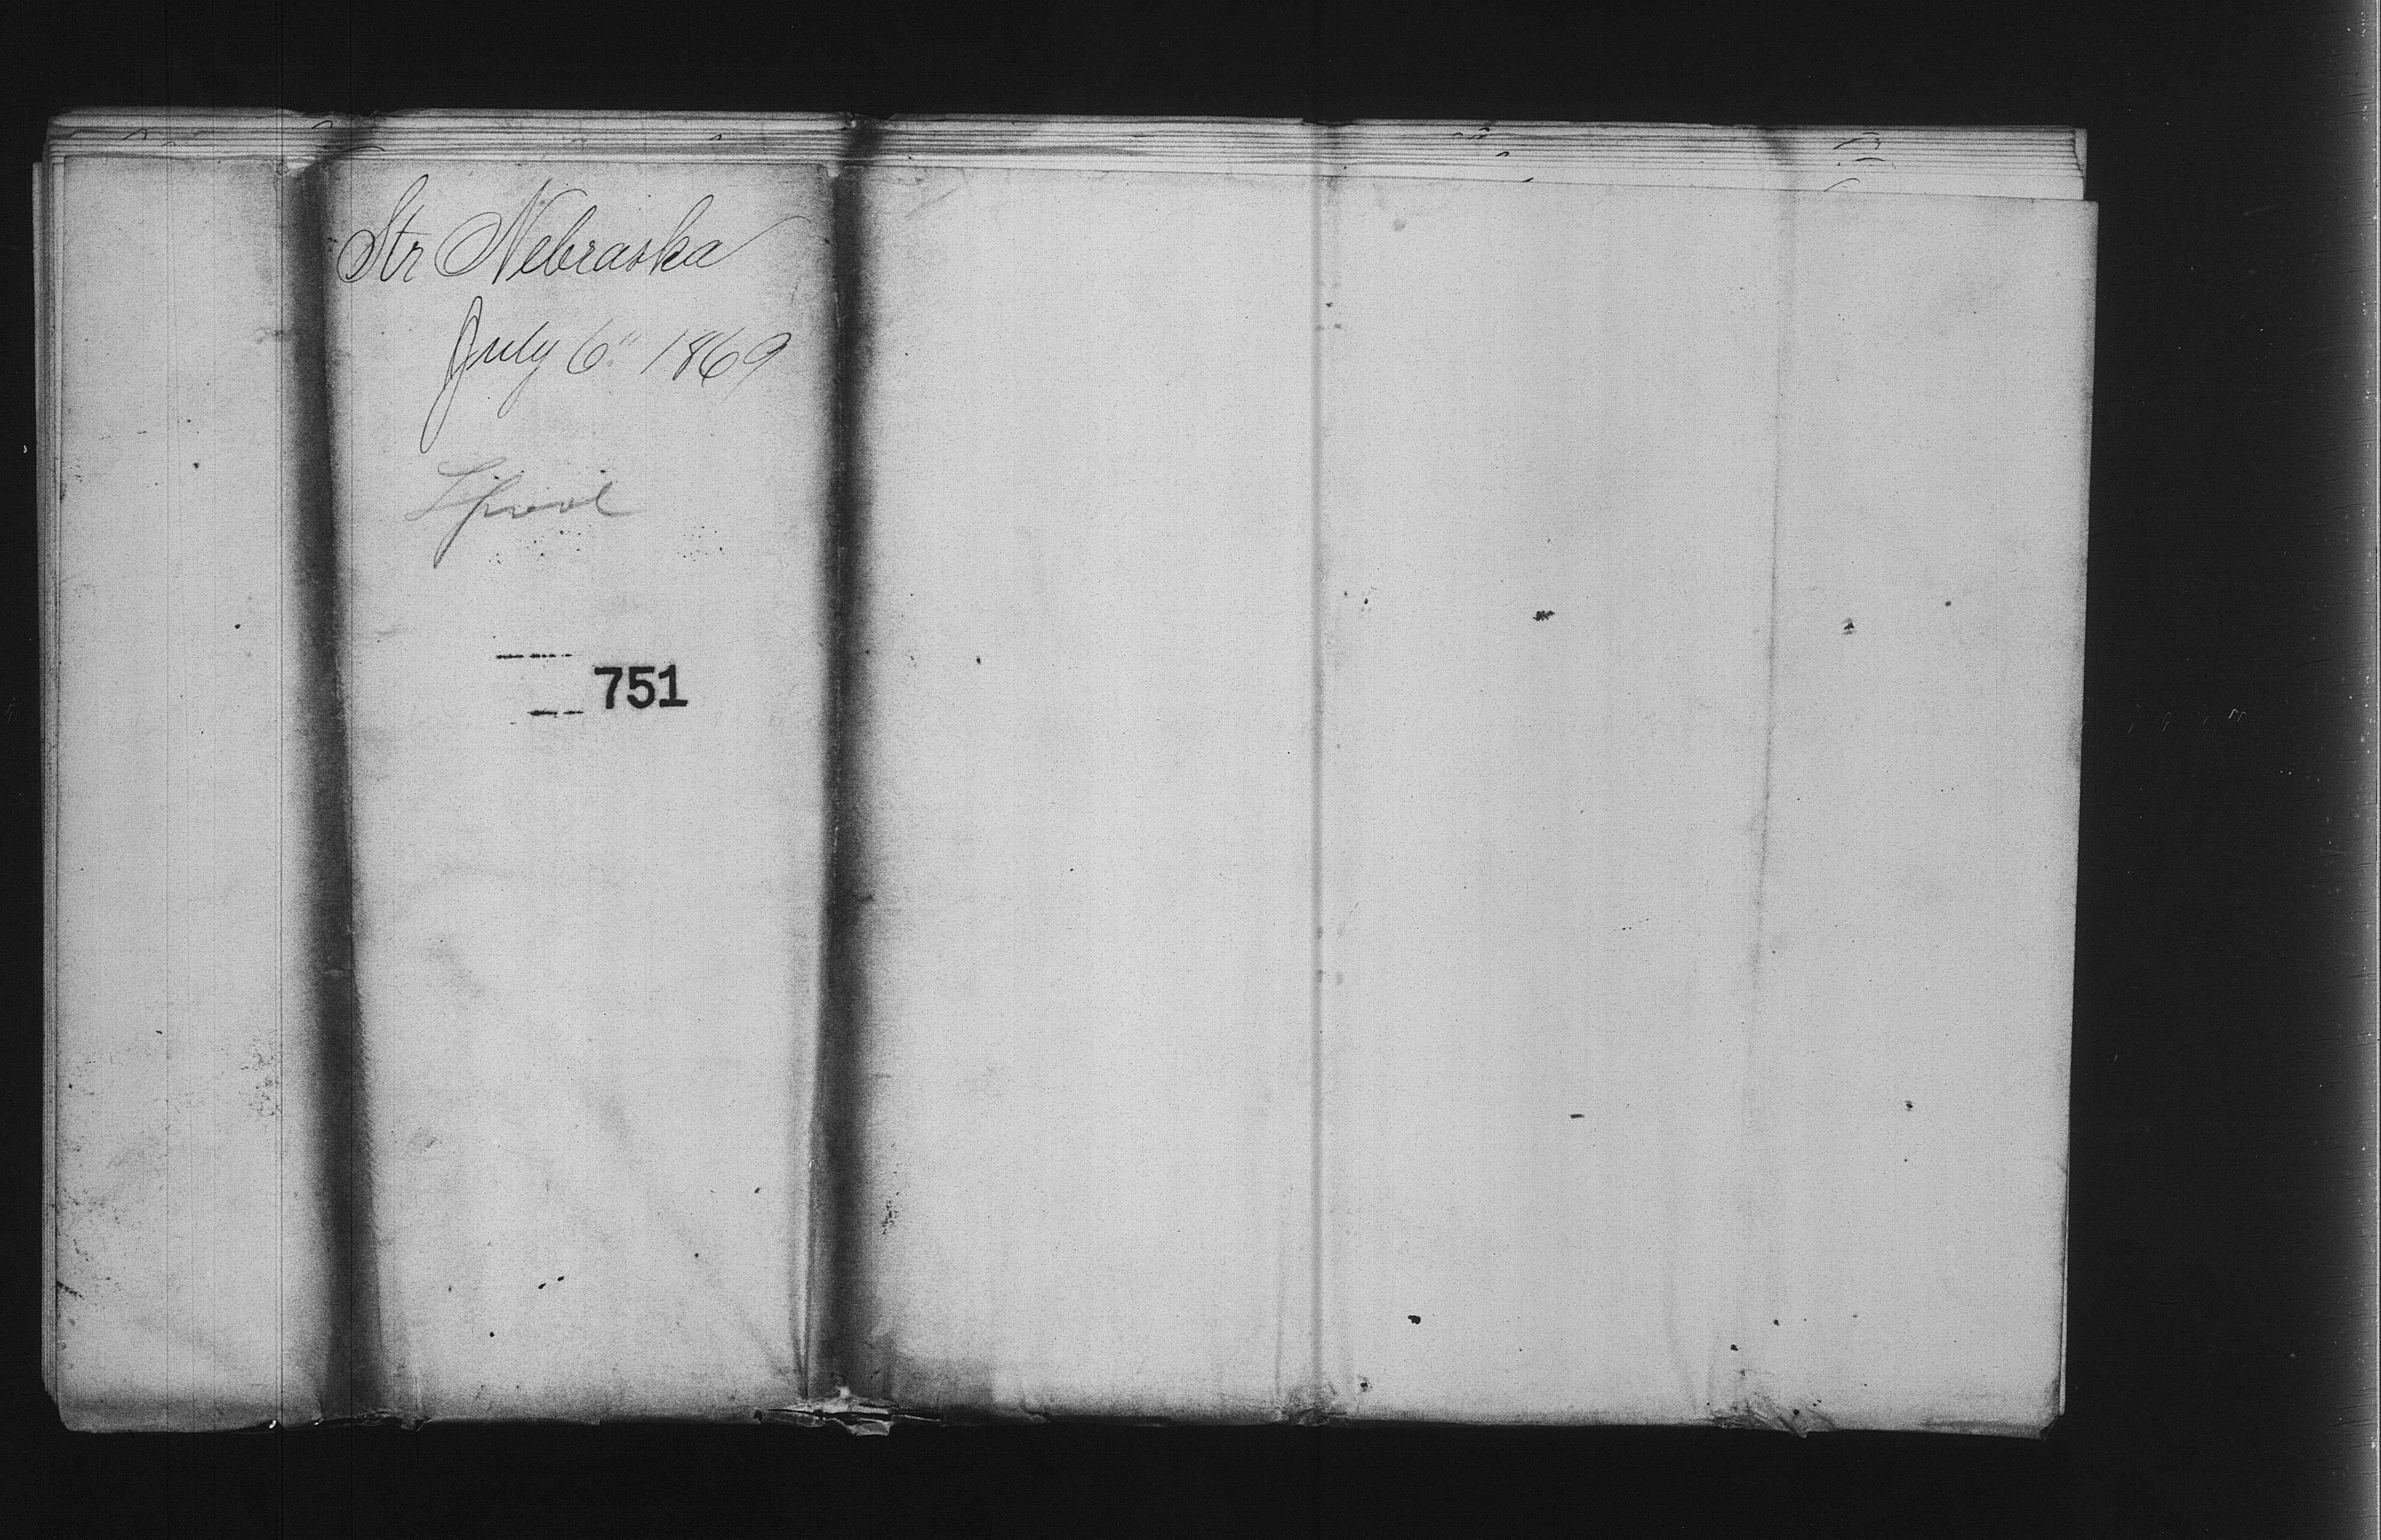 Str Nebraska
July 6" 1869
Lpool
751